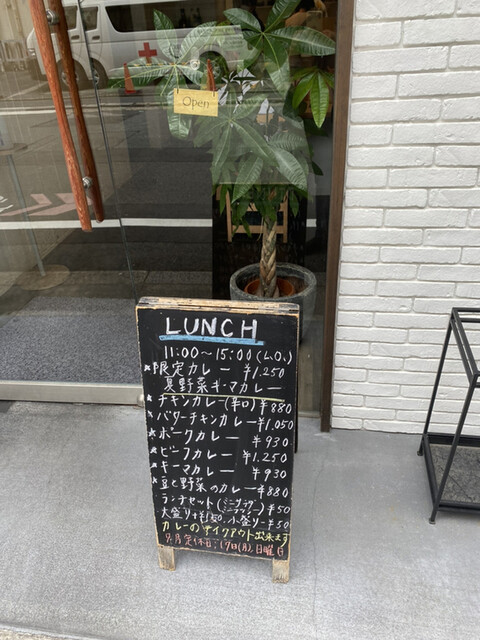 Open
LUNCH
11:00～15:00(L.O.)
★限定カレー ¥1,250
夏野菜キーマカレー
★チキンカレー(辛口) ¥880
★バターチキンカレー ¥1,050
★ポークカレー ¥930
★ビーフカレー ¥1,250
★キーマカレー ¥930
★豆と野菜のカレー ¥880
ランチセット ¥50
大盛り+¥150, 小盛り-¥50
カレーのテイクアウト出来ます
9月定休日:17日(月),日曜日